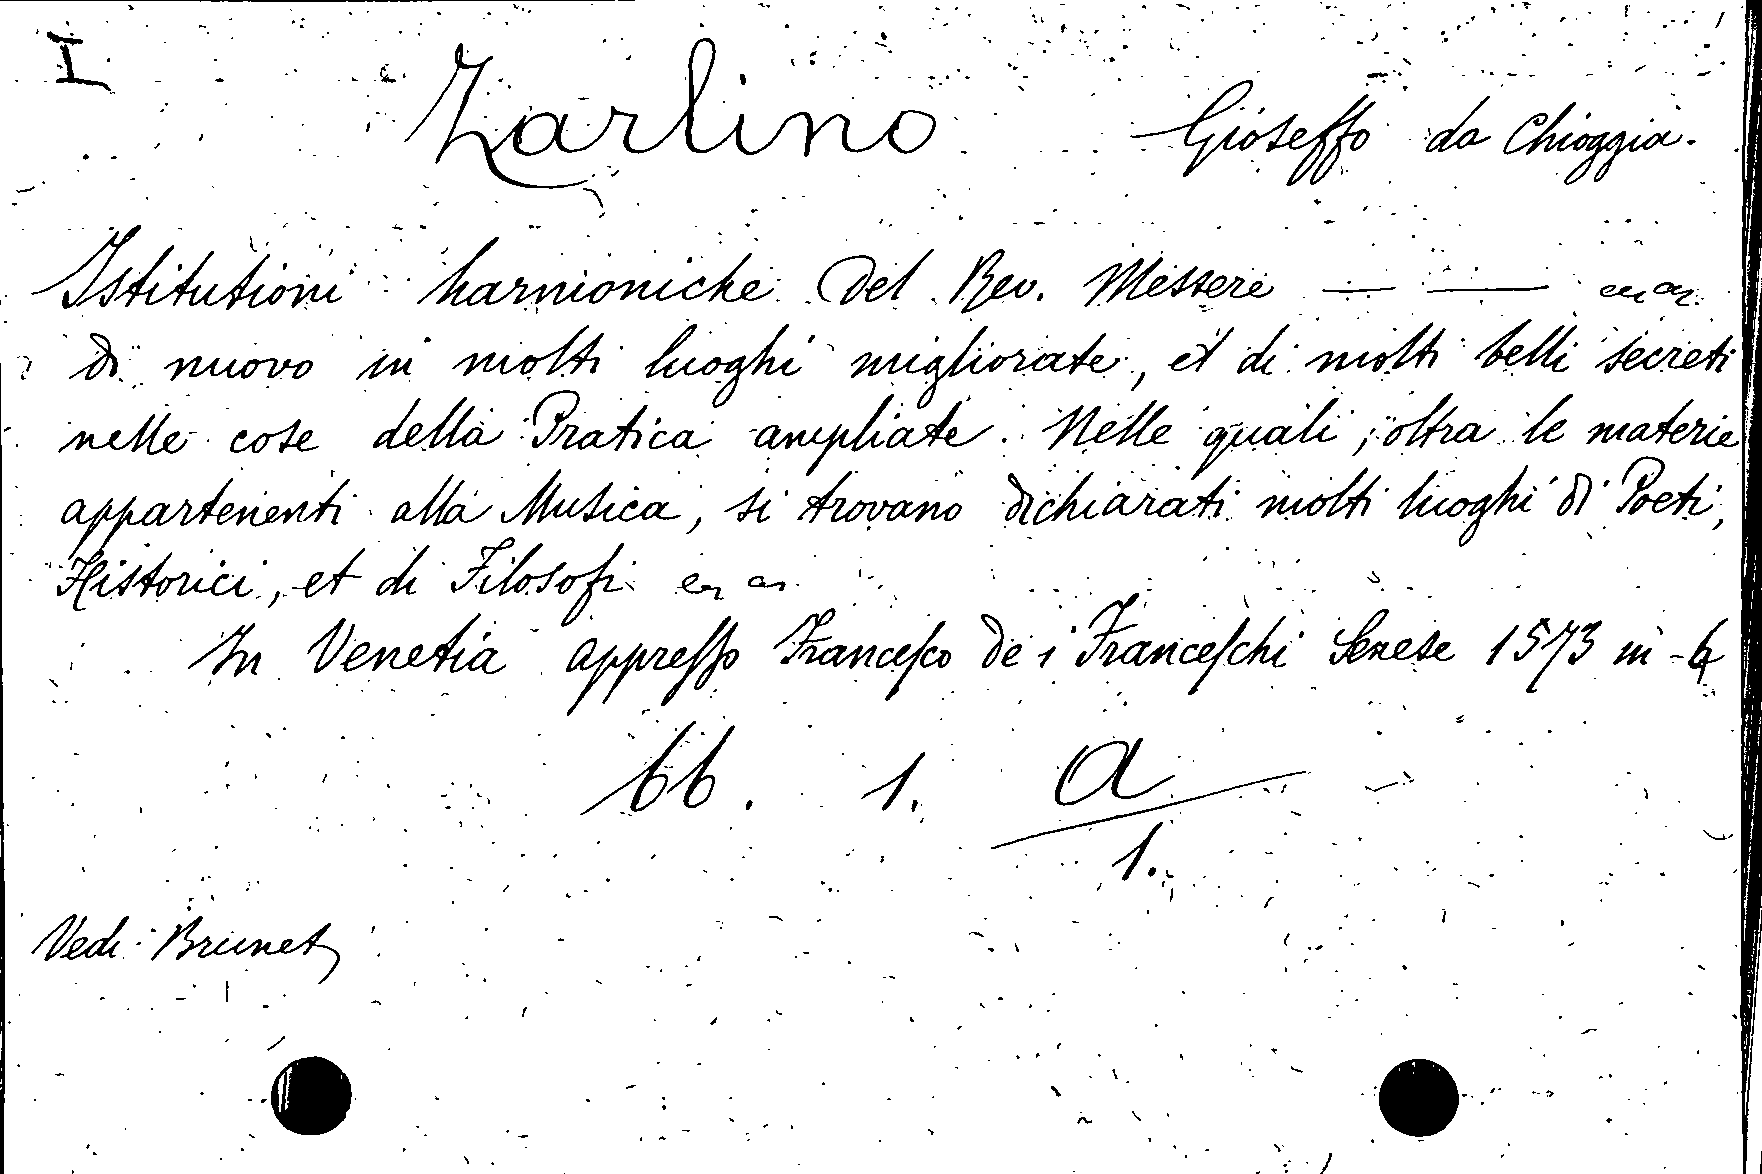 I
Zarlino Gioseffo da Chioggia.
Istitutioni harmoniche del Rev. Messere — —
di nuovo in molti luoghi migliorate, et di molti belli secreti
nelle cose della Pratica ampliate. Nelle quali, oltra le materie
appartenenti alla Musica, si trovano dichiarati molti luoghi di Poeti,
Historici, et di Filosofi
In Venetia appreſſo Franceſco de i Franceſchi Senese 1573 in-4
bb. 1. a
1.
Vedi Brunet